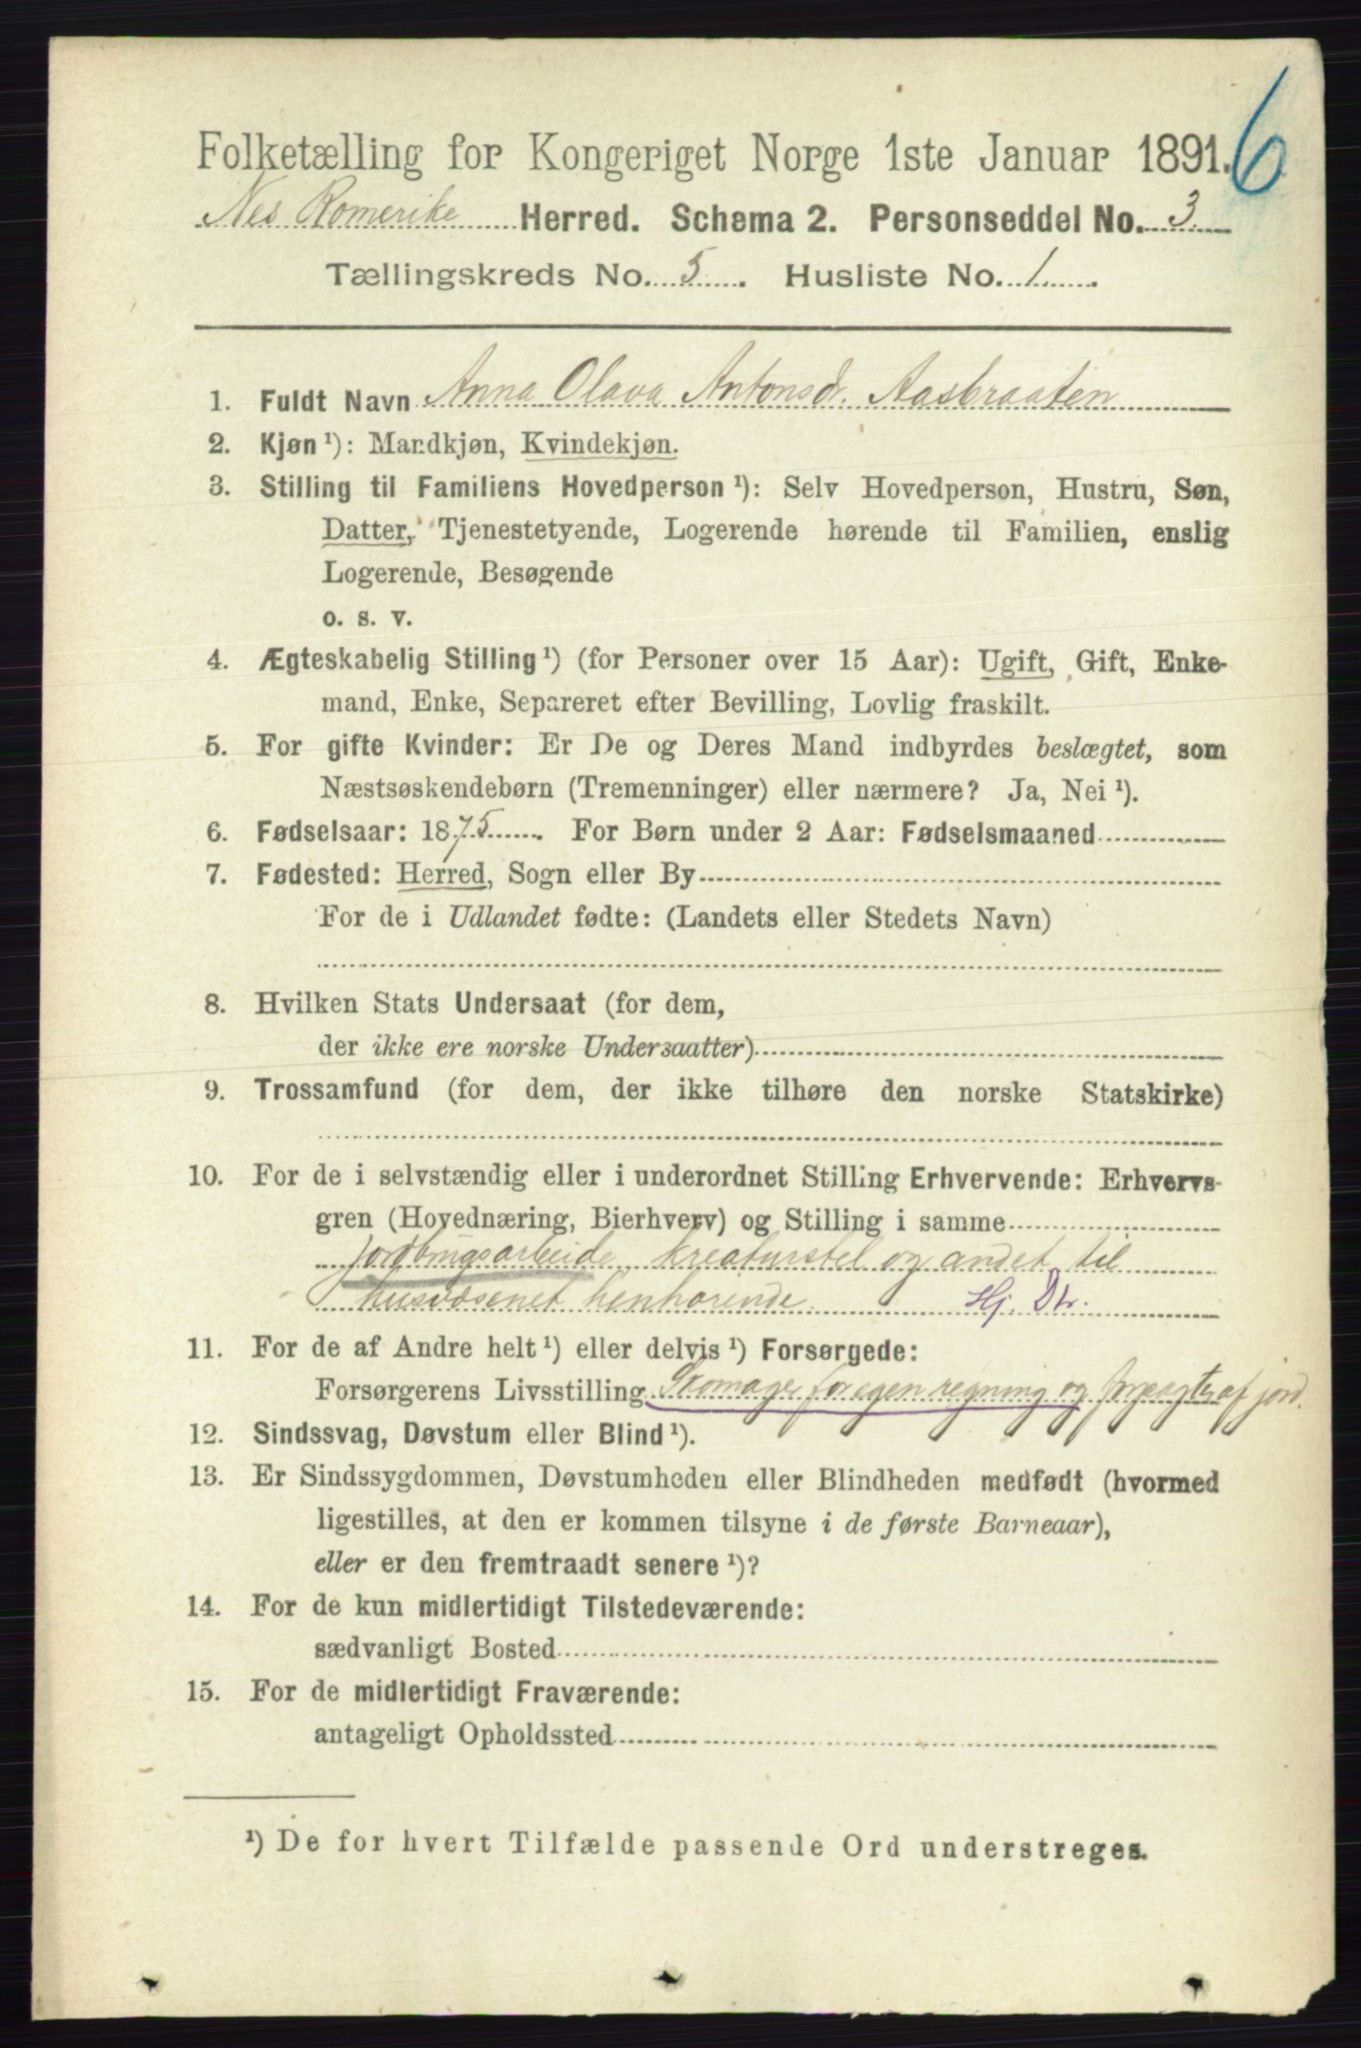 6
Folketælling for Kongeriget Norge 1ste Januar 1891.
Nes Romerike Herred. Schema 2. Personseddel No. 3
Tællingskreds No. 5. Husliste No. 1.
1. Fuldt Navn Anna Olava Antonsdr. Aasbraaten
2. Kjøn ¹): Mandkjøn, Kvindekjøn.
3. Stilling til Familiens Hovedperson ¹): Selv Hovedperson, Hustru, Søn,
Datter, Tjenestetyende, Logerende hørende til Familien, enslig
Logerende, Besøgende
o. s. v.
4. Ægteskabelig Stilling ¹) (for Personer over 15 Aar): Ugift, Gift, Enke-
mand, Enke, Separeret efter Bevilling, Lovlig fraskilt.
5. For gifte Kvinder: Er De og Deres Mand indbyrdes beslægtet, som
Næstsøskendebørn (Tremenninger) eller nærmere? Ja, Nei ¹).
6. Fødselsaar: 1875. For Børn under 2 Aar: Fødselsmaaned
7. Fødested: Herred, Sogn eller By
For de i Udlandet fødte: (Landets eller Stedets Navn)
8. Hvilken Stats Undersaat (for dem,
der ikke ere norske Undersaatter)
9. Trossamfund (for dem, der ikke tilhøre den norske Statskirke)
10. For de i selvstændig eller i underordnet Stilling Erhvervende: Erhvervs-
gren (Hovednæring, Bierhverv) og Stilling i samme
jordbrugsarbeide, kreaturstel og andet til
husvæsenet henhørende. Hj. Dtr.
11. For de af Andre helt ¹) eller delvis ¹) Forsørgede:
Forsørgerens Livsstilling Skomager for egen regning og forpagter af jord.
12. Sindssvag, Døvstum eller Blind ¹).
13. Er Sindssygdommen, Døvstumheden eller Blindheden medfødt (hvormed
ligestilles, at den er kommen tilsyne i de første Barneaar),
eller er den fremtraadt senere ¹)?
14. For de kun midlertidigt Tilstedeværende:
sædvanligt Bosted
15. For de midlertidigt Fraværende:
antageligt Opholdssted
¹) De for hvert Tilfælde passende Ord understreges.